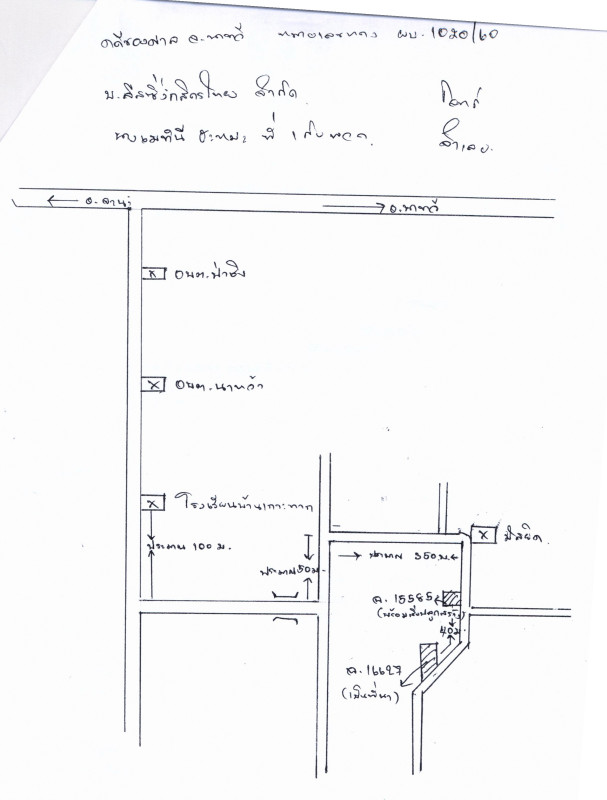 คดีของศาล จ.นาทวี หมายเลขแดง ผบ.1020/60
บ.ลีสซิ่งกสิกรไทย จำกัด โจทก์
ที่ 1 กับพวก จำเลย
← อ.จานะ
→ อ.นาทวี
อบต.ป่าชิง
อบต.นาหว้า
โรงเรียนบ้านเกาะทาก
ประมาณ 100 ม.
ประมาณ 50 ม.
→ ประมาณ 350 ม. ←
มัสยิด
ฉ.15585
(พร้อมสิ่งปลูกสร้าง)
40 ม.
ฉ.16627
(เป็นที่นา)